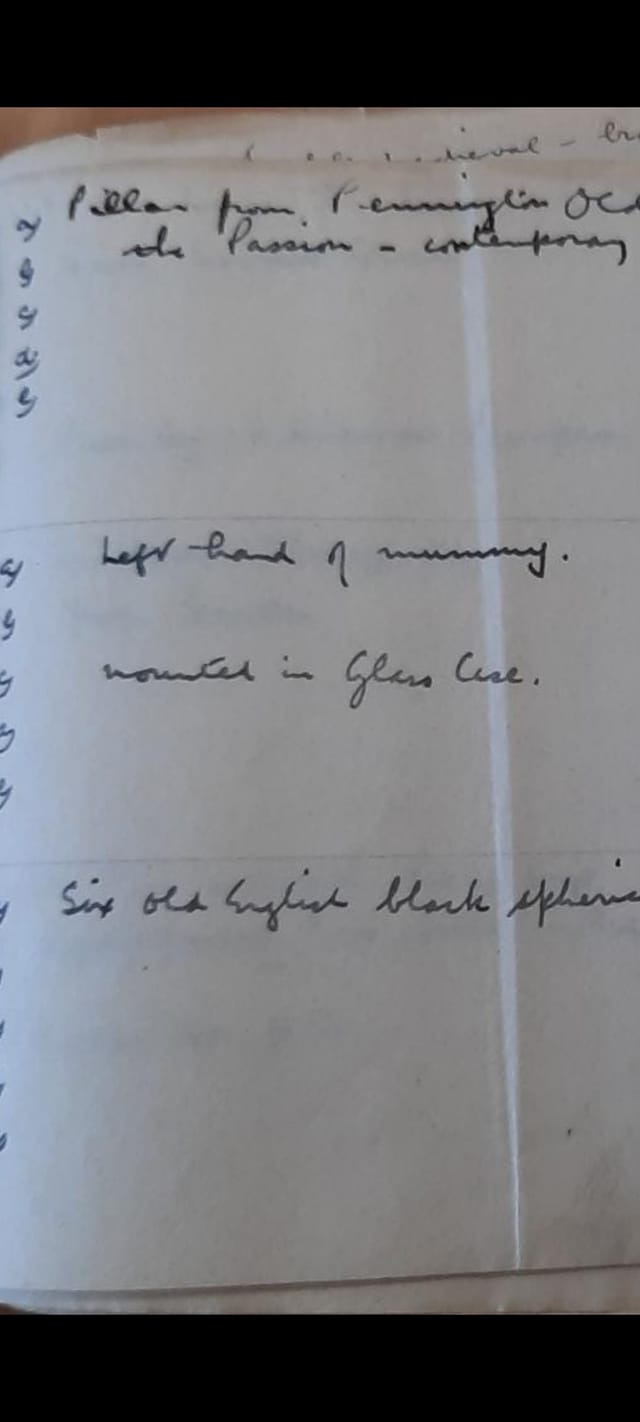 Pillar from Pennington Old
the Passion - contemporary
Left hand of mummy.
mounted in Glass Case.
Six old English black spheric